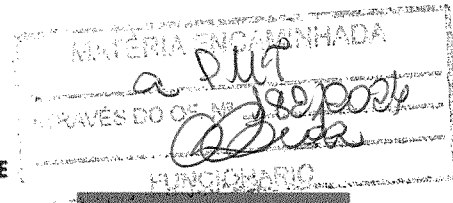 MATÉRIA ENCAMINHADA
a PMT
ATRAVÉS DO OF. Nº 182/2024
E
FUNCIONÁRIO